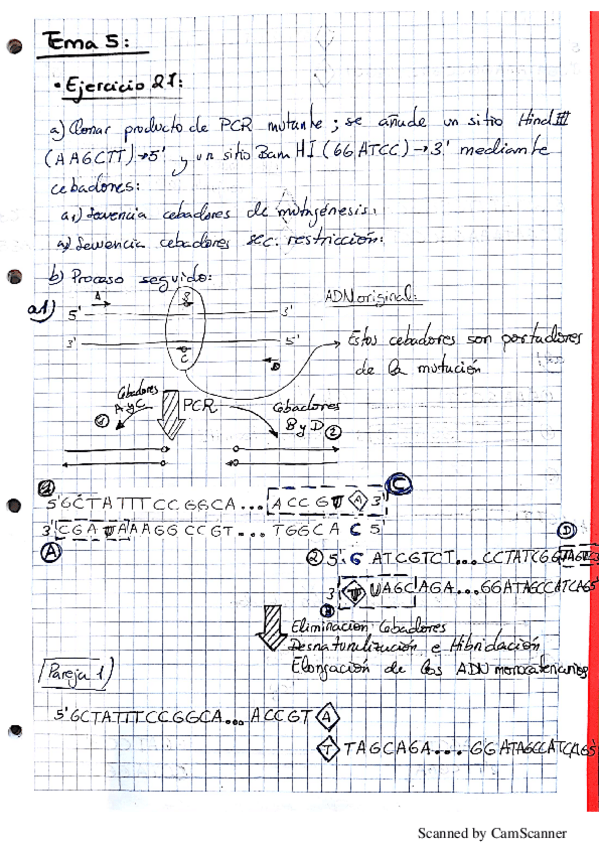 Tema 5:
• Ejercicio 21:
a) Clonar producto de PCR mutante; se añade un sitio Hind III
(AAGCTT)→5' y un sitio Bam HI (GGATCC)→3' mediante
cebadores:
a1) Secuencia cebadores de mutagénesis.
a2) Secuencia cebadores sec. restricción.
b) Proceso seguido:
a1)
A
B
ADN original:
5'
3'
3'
5'
C
D
Estos cebadores son portadores
de la mutación
Cebadores
A y C
PCR
Cebadores
B y D
1
2
1
C
5'GCTATTTCCGGCA...ACCGU A 3'
3'CGAUAAAGGCCGT...TGGCA C 5'
A
D
2 5' G ATCGTCT...CCTATCGG
3' UAGCAGA...GGATAGCCATCAG5'
Eliminacion Cebadores
Desnaturalización e Hibridación
Elongación de los ADN monocatenarios
Pareja 1)
5'GCTATTTCCGGCA...ACCGT A
T TAGCAGA....GGATAGCCATCAG5'
Scanned by CamScanner